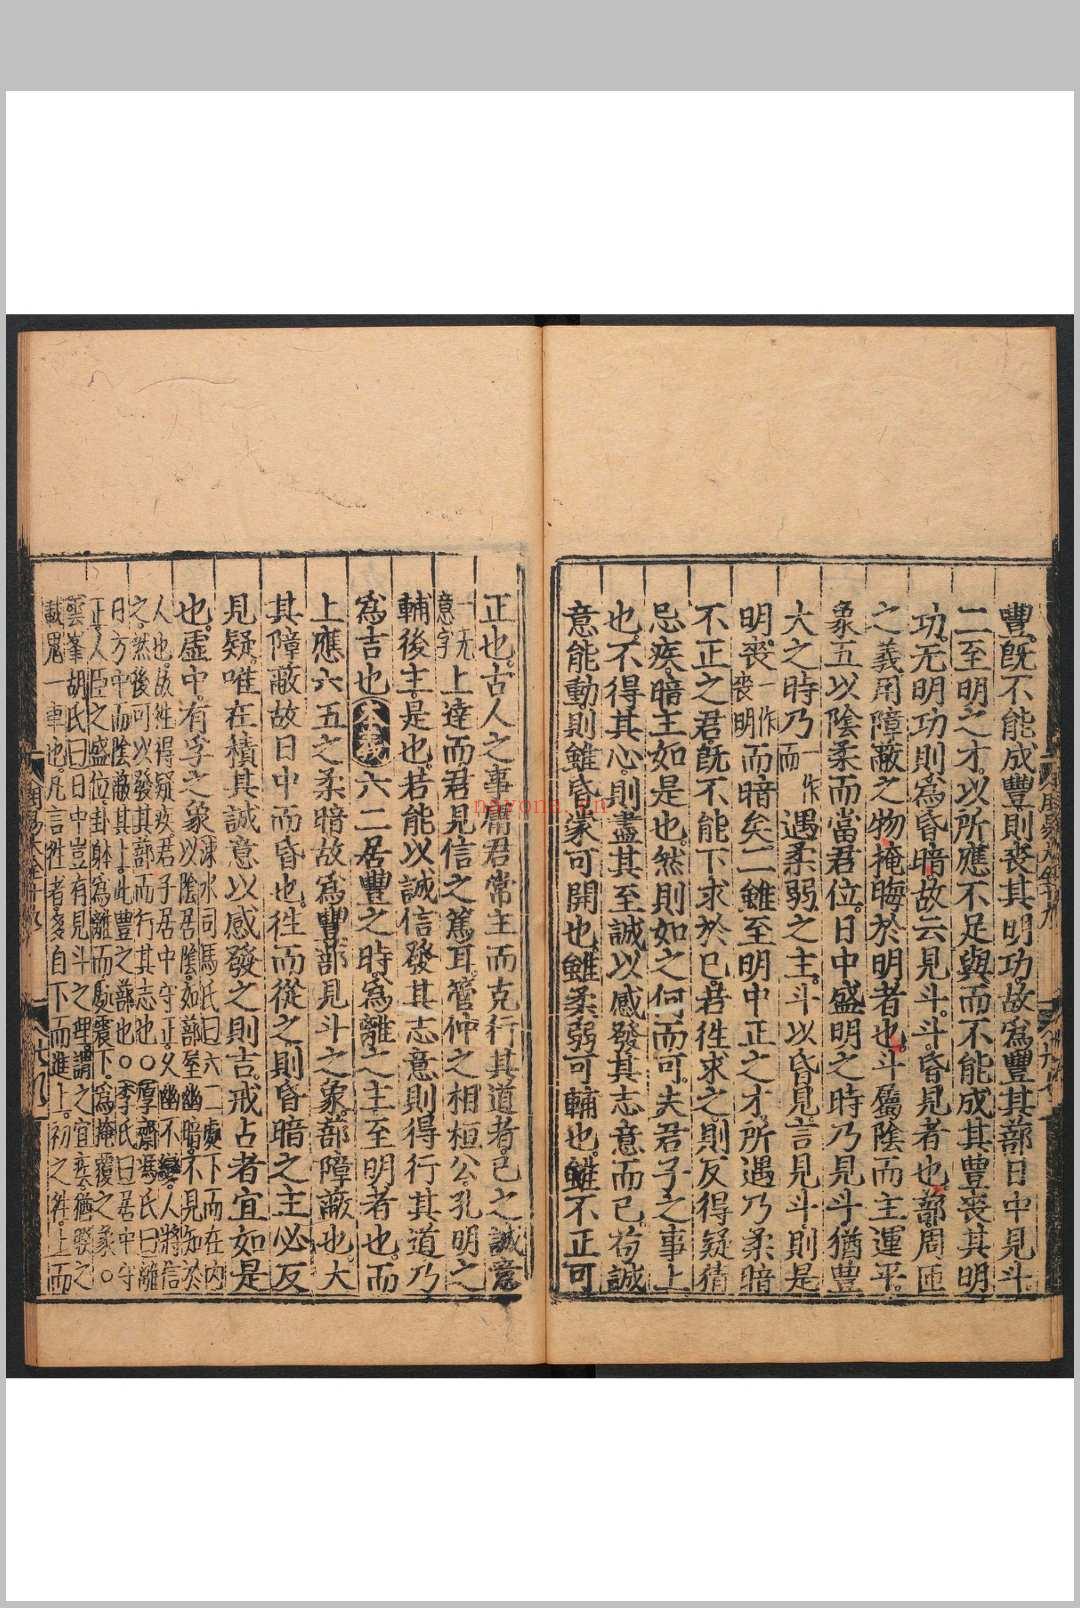 豐旣不能成豐則喪其明功故爲豐其蔀日中見斗
二至明之才以所應不足與而不能成其豐喪其明
功无明功則爲昏暗故云見斗斗昏見者也蔀周匝
之義用障蔽之物掩晦於明者也斗屬陰而主運平
象五以陰柔而當君位日中盛明之時乃見斗猶豐
大之時乃一作而遇柔弱之主斗以昏見言見斗則是
明喪一作喪明而暗矣二雖至明中正之才所遇乃柔暗
不正之君旣不能下求於已若徃求之則反得疑猜
忌疾暗主如是也然則如之何而可夫君子之事上
也不得其心則盡其至誠以感發其志意而已茍誠
意能動則雖昏蒙可開也雖柔弱可輔也雖不正可
正也古人之事庸君常主而克行其道者已之誠意
一无意字上達而君見信之篤耳管仲之相桓公孔明之
輔後主是也若能以誠信發其志意則得行其道乃
爲吉也本義六二居豐之時爲離之主至明者也而
上應六五之柔暗故爲豐蔀見斗之象蔀障蔽也大
其障蔽故日中而昏也徃而從之則昏暗之主必反
見疑唯在積其誠意以感發之則吉戒占者宜如是
也虛中有孚之象涑水司馬氏曰六二處下而在內
陰居陰如蔀至幽暗不見知於
人也故徃得疑疾君子居中守正久幽不變人將信
之然後可以發其蔀而行其志也○厚齋馮氏曰離
日方中而陰蔽其上此豐之蔀也○李氏曰居中守
正人臣之盛位卦躰爲離而處震下爲掩覆之象○
雲峯胡氏曰日中豈有見斗之理謂之宜疾猶睽之
載鬼一車也凡言徃者多自下而進上初之徃上而
nayona.vn